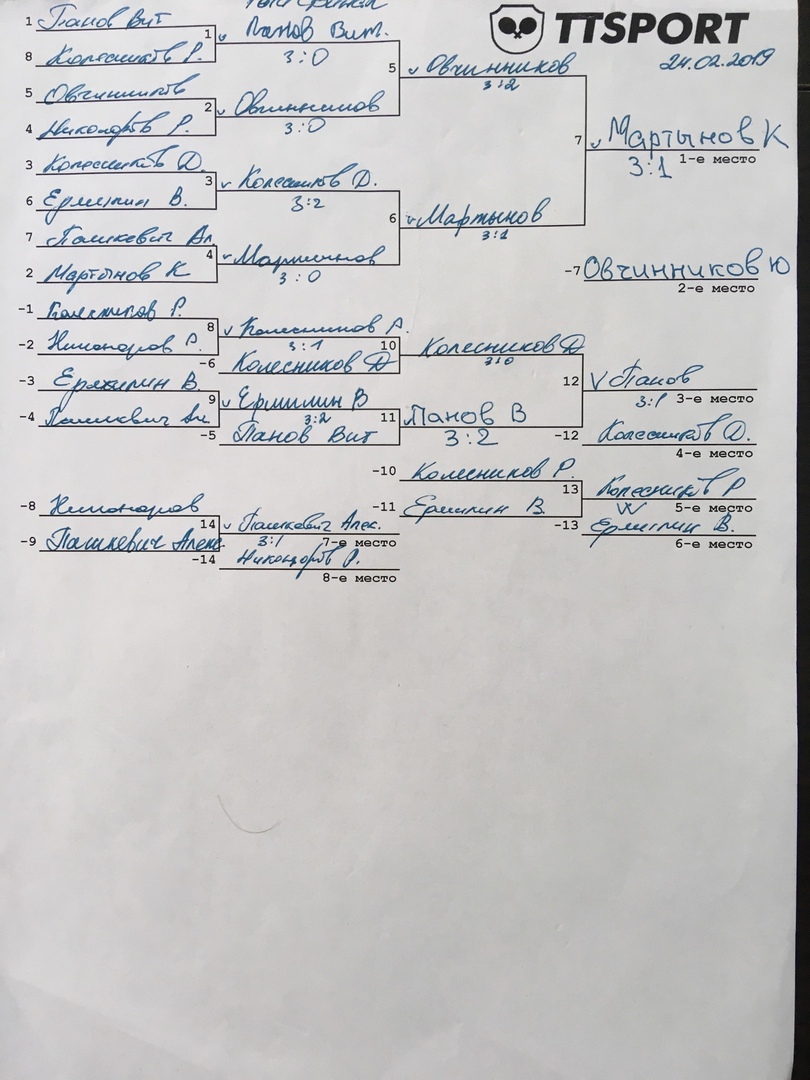 TTSPORT
24.02.2019
1 Панов Вит
1 Панов Вит.
8 Колесников Р.
3:0
5 Овчинников
5 Овчинников
3:2
2 Овчинников
4 Никоноров Р.
3:0
7 Мартынов К
3:1 1-е место
3 Колесников Д.
3 Колесников Д.
6 Ермилин В.
3:2
7 Пашкевич Ал
6 Мартынов
3:1
4 Мартынов
2 Мартынов К
3:0
-7 Овчинников Ю
2-е место
-1 Колесников Р.
8 Колесников Р.
-2 Никоноров Р.
3:1
10 Колесников Д
3:0
-6 Колесников Д
-3 Ермилин В.
12 Панов
3:1 3-е место
9 Ермилин В
-4 Пашкевич Ал.
3:2
11 Панов В
3:2
-5 Панов Вит
-12 Колесников Д.
4-е место
-10 Колесников Р.
13 Колесников Р
W 5-е место
-8 Никоноров
-11 Ермилин В.
14 Пашкевич Алек.
-13 Ермилин В.
-9 Пашкевич Алек.
3:1 7-е место
6-е место
-14 Никоноров Р.
8-е место